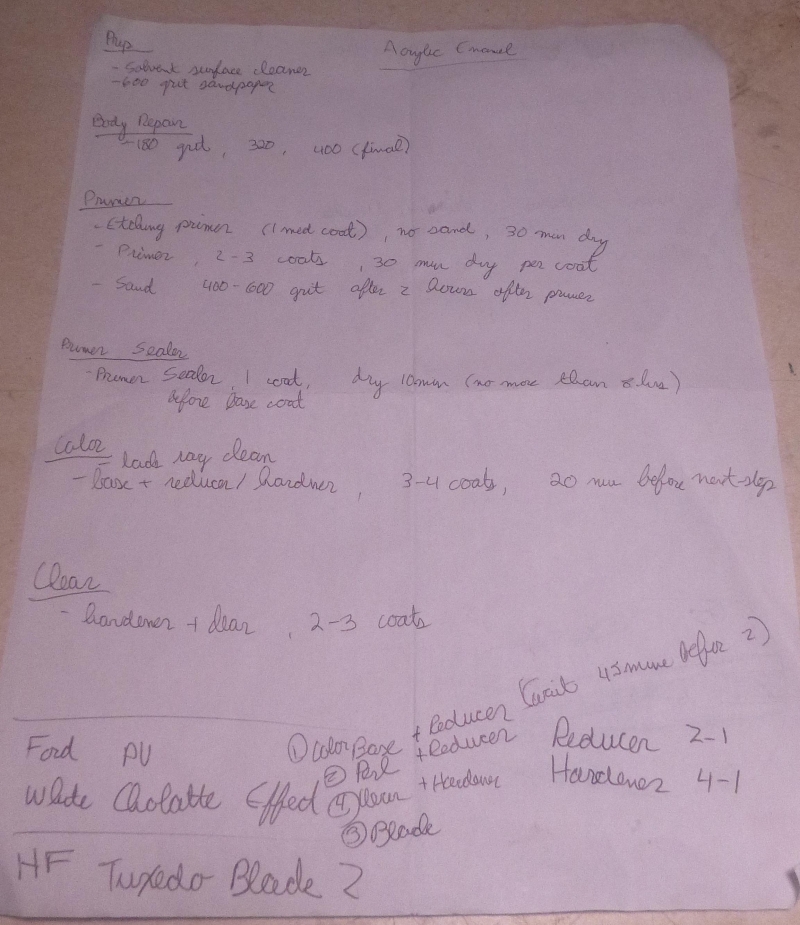 Acrylic Enamel
Prep
- Solvent surface cleaner
- 600 grit sandpaper
Body Repair
- 180 grd, 320, 400 (final)
Primer
- Etching primer (1 med coat), no sand, 30 min dry
- Primer, 2-3 coats, 30 min dry per coat
- Sand 400-600 grit after 2 hours after primer
Primer Sealer
- Primer Sealer, 1 coat, dry 10 min (no more than 8 hrs)
before base coat
Color
- rag clean
- base + reducer/hardner, 3-4 coats, 20 min before next-step
Clear
- hardener + clear, 2-3 coats
(wait 45 mins before 2)
Ford PU ① Color Base + Reducer Reducer 2-1
② Perl + Reducer
White Cholatte Effed ④ Clear + Hardener Hardener 4-1
③ Blade
HF Tuxedo Blade 2